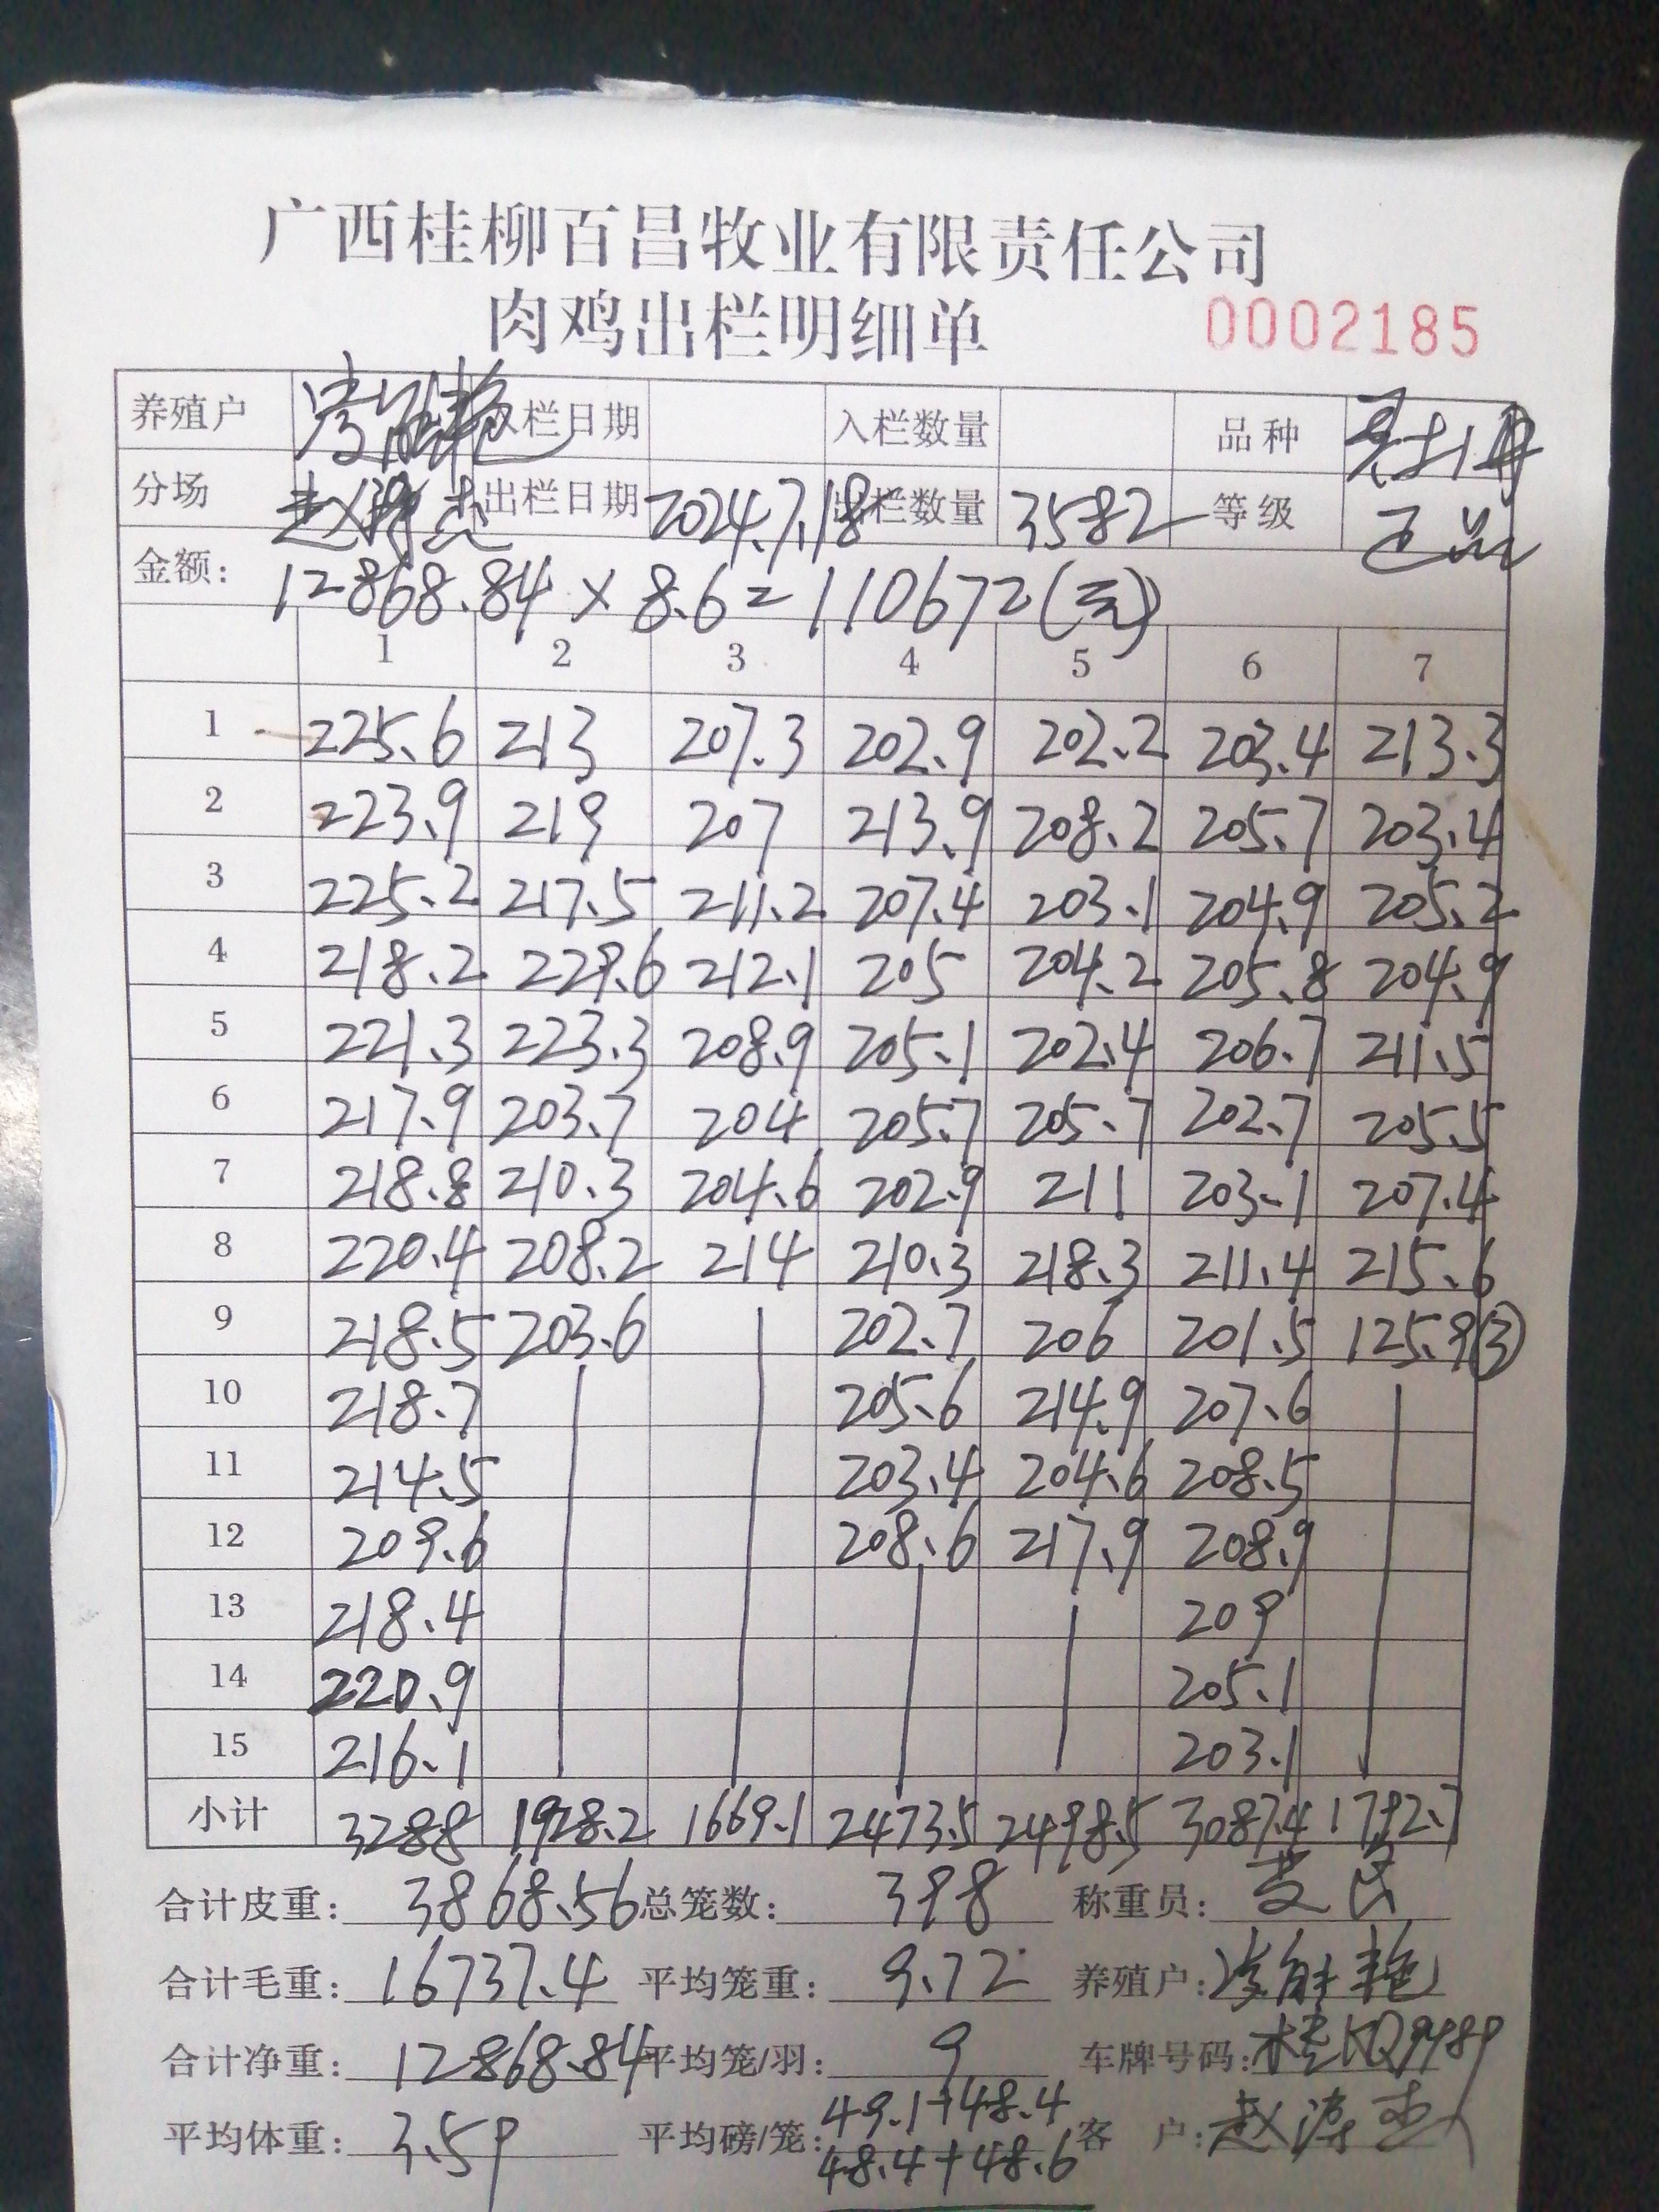 广西桂柳百昌牧业有限责任公司
肉鸡出栏明细单 0002185
养殖户 入栏日期 入栏数量 品种
分场 出栏日期 2024.7.18 出栏数量 3582 等级 正品
金额: 12868.84 × 8.6 = 110672(元)
1 2 3 4 5 6 7
1 225.6 213 207.3 202.9 202.2 203.4 213.3
2 223.9 219 207 213.9 208.2 205.7 203.4
3 225.2 217.5 211.2 207.4 203.1 204.9 205.2
4 218.2 229.6 212.1 205 204.2 205.8 204.9
5 221.3 223.3 208.9 205.1 202.4 206.7 211.5
6 217.9 203.7 204 205.7 205.7 202.7 205.5
7 218.8 210.3 204.6 202.9 211 203.1 207.4
8 220.4 208.2 214 210.3 218.3 211.4 215.6
9 218.5 203.6 202.7 206 201.5 125.9 ③
10 218.7 205.6 214.9 207.6
11 214.5 203.4 204.6 208.5
12 209.6 208.6 217.9 208.9
13 218.4 209
14 220.9 205.1
15 216.1 203.1
小计 3288 1928.2 1669.1 2473.5 2498.5 3087.4 1792.7
合计皮重: 3868.56 总笼数: 398 称重员:
合计毛重: 16737.4 平均笼重: 9.72 养殖户:
合计净重: 12868.84 平均笼/羽: 9 车牌号码: 桂KQ9989
平均体重: 3.59 平均磅/笼: 49.1+48.4 客户:
48.4+48.6